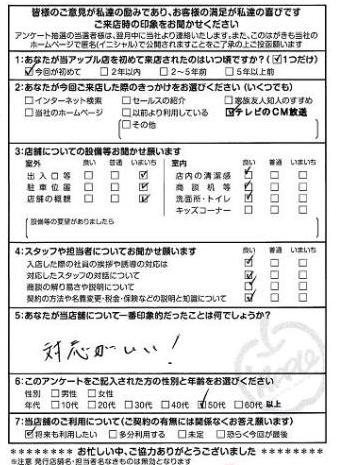 皆様のご意見が私達の励みであり、お客様の満足が私達の喜びです
ご来店時の印象をお聞かせください
アンケート抽選の当選者様は、翌月中に当社より連絡いたします。また、このはがきも当社の
ホームページで匿名(イニシャル)で公開されますことをご了承の上ご投函願います
1:あなたが当アップル店を初めて来店されたのはいつ頃ですか?(☑1つだけ)
☑今回が初めて □2年以内 □2~5年前 □5年以上前
2:あなたが今回ご来店した際のきっかけをお選びください(いくつでも)
□インターネット検索 □セールスの紹介 □家族友人知人のすすめ
□当社のホームページ □以前より利用している ☑テレビのCM放送
□その他
3:店舗についての設備等お聞かせ願います
室外 良い 普通 いまいち 室内 良い 普通 いまいち
出入口等 □ □ ☑ 店内の清潔感 ☑ □ □
駐車位置 □ □ ☑ 商談机等 ☑ □ □
店舗の概観 □ □ ☑ 洗面所・トイレ ☑ □ □
キッズコーナー □ □ □
設備等の要望がありましたら
4:スタッフや担当者についてお聞かせ願います 良い 普通 いまいち
入店した際の社員の挨拶や誘導の対応は ☑ □ □
対応したスタッフの対話について ☑ □ □
商談の解り易さや説明について ☑ □ □
契約の方法や名義変更・税金・保険などの説明と知識について ☑ □ □
5:あなたが当店舗について一番印象的だったことは何でしょうか?
対応がいい!
6:このアンケートをご記入された方の性別と年齢をお選びください
性別 □男性 □女性
年代 □10代 □20代 □30代 □40代 ☑50代 □60代 以上
7:当店舗のご利用について(ご契約の有無には関係なくお答え願います)
☑将来も利用したい □多分利用する □未定 □恐らく今回が最後
******** お忙しい中、ご協力ありがとうございました ********
※注意 発行店舗名・担当者名なきものは無効となります